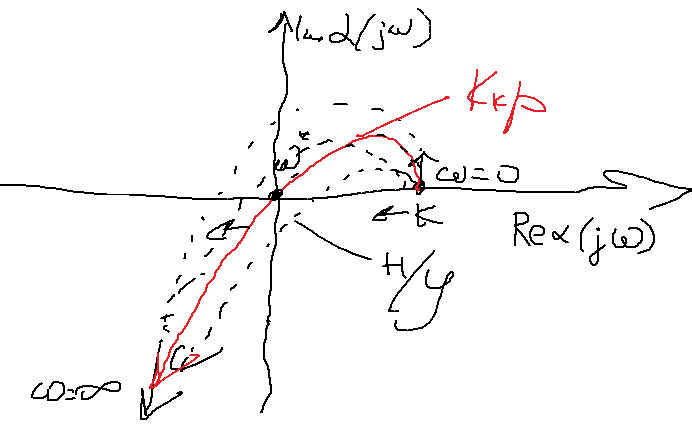 Im α(jω)
Kкр
ω*
ω=0
K
Re α(jω)
H/y
ω=∞